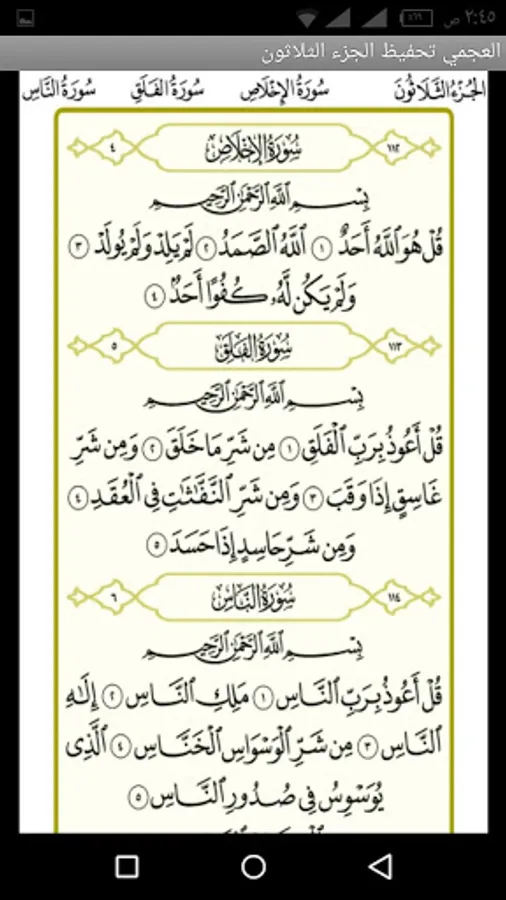 ٢:٤٥ ص
٪٦٩
العجمي تحفيظ الجزء الثلاثون
الجُزءُ الثَّلَاثُونَ سُورَةُ الإِخْلَاصِ سُورَةُ الفَلَقِ سُورَةُ النَّاسِ
١١٢ سُورَةُ الإِخْلَاصِ ٤
بِسْمِ ٱللَّهِ ٱلرَّحْمَٰنِ ٱلرَّحِيمِ
قُلْ هُوَ ٱللَّهُ أَحَدٌ ١ ٱللَّهُ ٱلصَّمَدُ ٢ لَمْ يَلِدْ وَلَمْ يُولَدْ ٣
وَلَمْ يَكُن لَّهُۥ كُفُوًا أَحَدٌۢ ٤
١١٣ سُورَةُ الفَلَقِ ٥
بِسْمِ ٱللَّهِ ٱلرَّحْمَٰنِ ٱلرَّحِيمِ
قُلْ أَعُوذُ بِرَبِّ ٱلْفَلَقِ ١ مِن شَرِّ مَا خَلَقَ ٢ وَمِن شَرِّ
غَاسِقٍ إِذَا وَقَبَ ٣ وَمِن شَرِّ ٱلنَّفَّٰثَٰتِ فِى ٱلْعُقَدِ ٤
وَمِن شَرِّ حَاسِدٍ إِذَا حَسَدَ ٥
١١٤ سُورَةُ النَّاسِ ٦
بِسْمِ ٱللَّهِ ٱلرَّحْمَٰنِ ٱلرَّحِيمِ
قُلْ أَعُوذُ بِرَبِّ ٱلنَّاسِ ١ مَلِكِ ٱلنَّاسِ ٢ إِلَٰهِ
ٱلنَّاسِ ٣ مِن شَرِّ ٱلْوَسْوَاسِ ٱلْخَنَّاسِ ٤ ٱلَّذِى
يُوَسْوِسُ فِى صُدُورِ ٱلنَّاسِ ٥